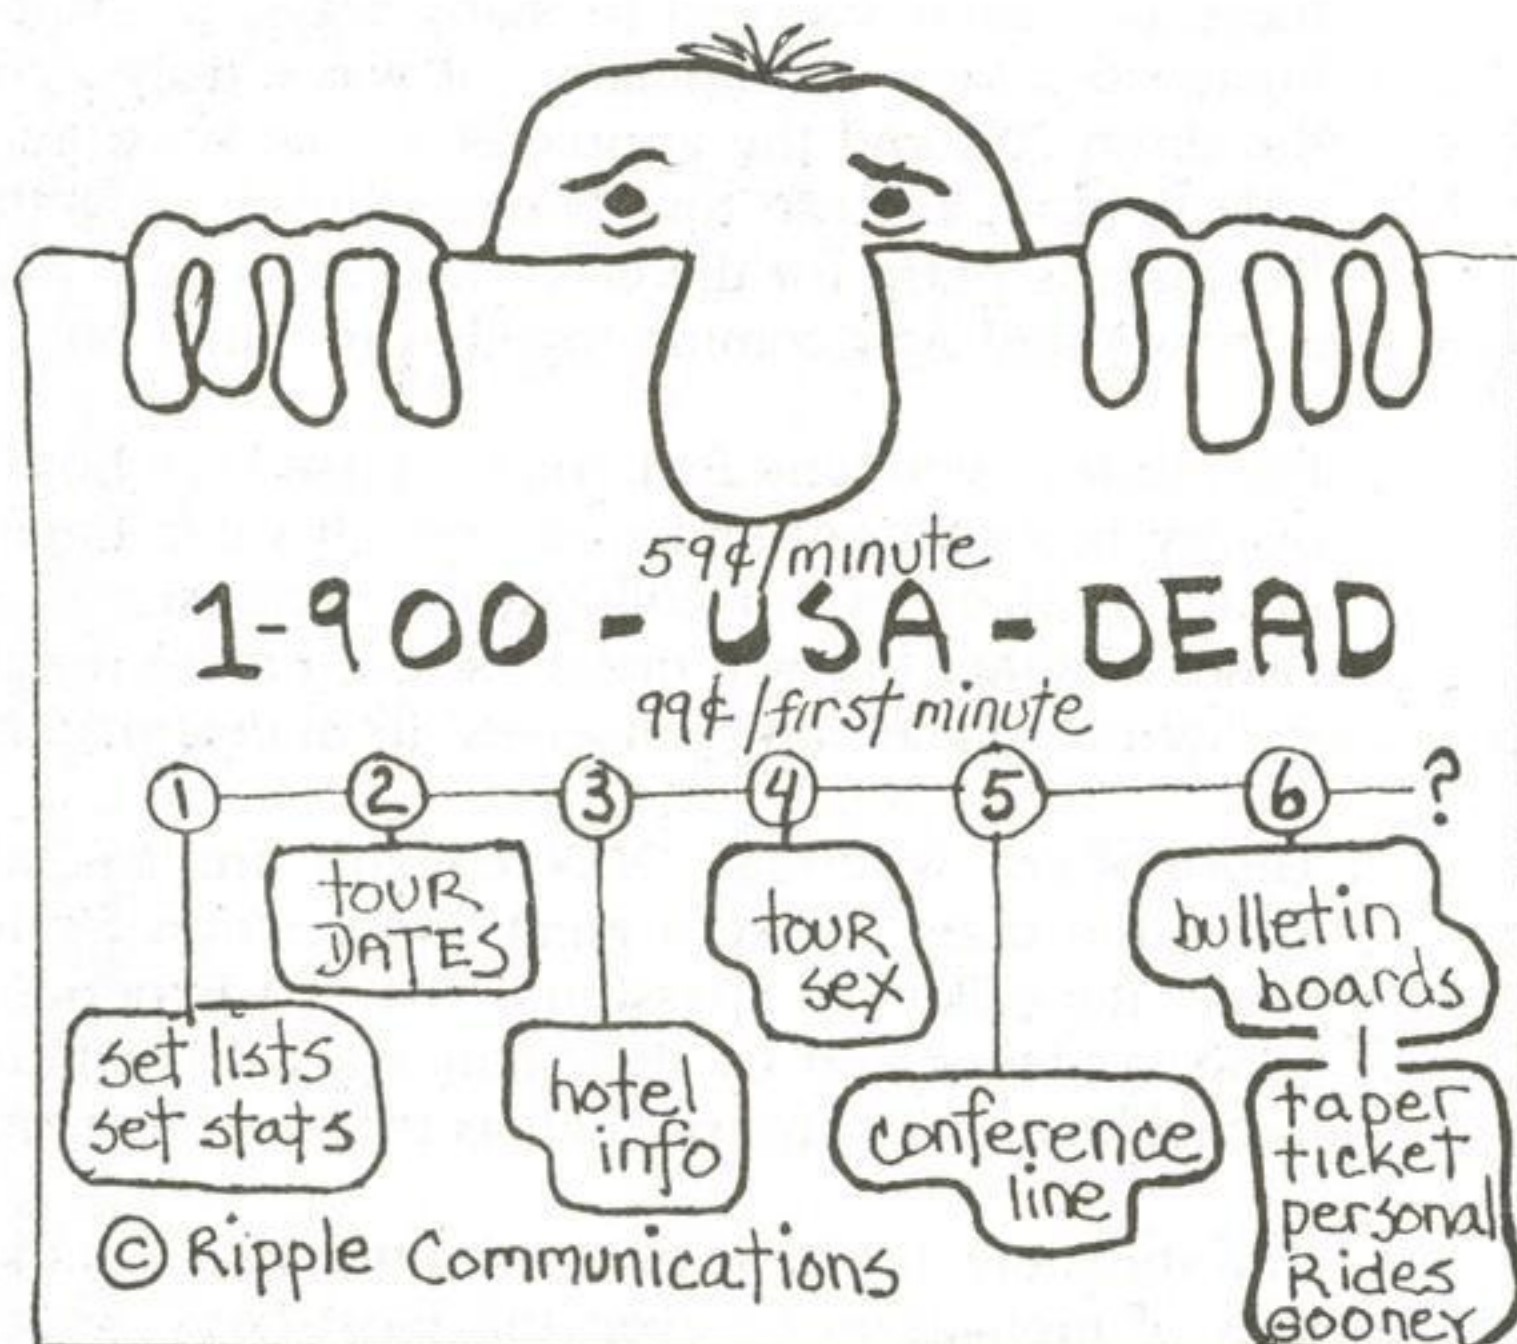 59¢/minute
1-900-USA-DEAD
99¢/first minute
1 2 3 4 5 6 ?
set lists
set stats
tOUR
DATES
hotel
info
tOUR
sex
conference
line
bulletin
boards
taper
ticket
personal
Rides
gooney
© Ripple Communications